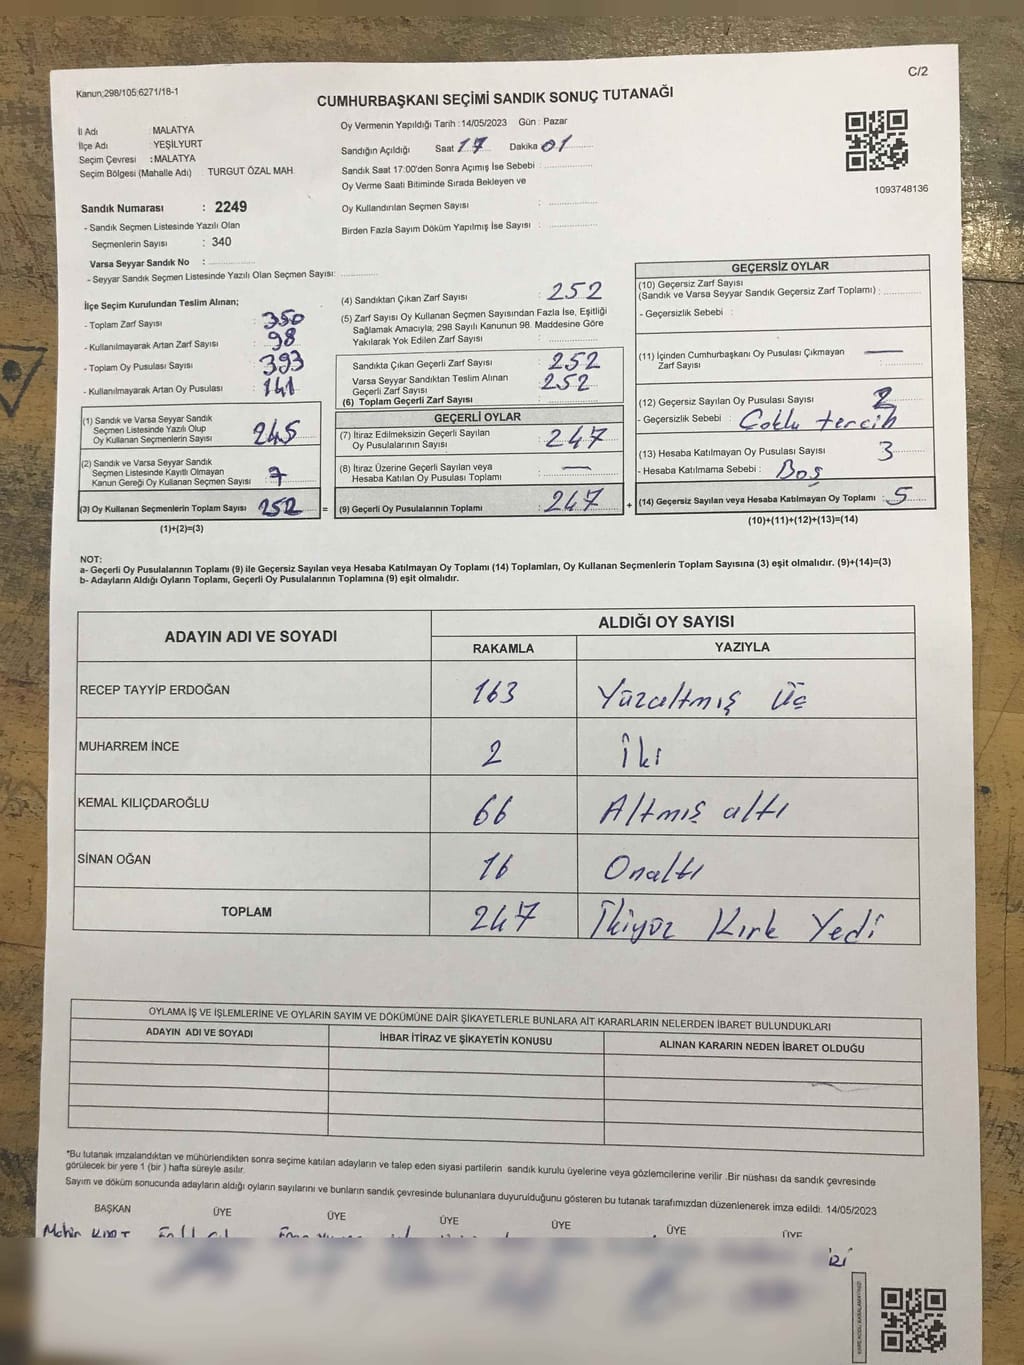 C/2
Kanun;298/105;6271/18-1
CUMHURBAŞKANI SEÇİMİ SANDIK SONUÇ TUTANAĞI
İl Adı : MALATYA
İlçe Adı : YEŞİLYURT
Seçim Çevresi : MALATYA
Seçim Bölgesi (Mahalle Adı) : TURGUT ÖZAL MAH.
Sandık Numarası : 2249
- Sandık Seçmen Listesinde Yazılı Olan
Seçmenlerin Sayısı : 340
Varsa Seyyar Sandık No :
- Seyyar Sandık Seçmen Listesinde Yazılı Olan Seçmen Sayısı:
Oy Vermenin Yapıldığı Tarih : 14/05/2023 Gün : Pazar
Sandığın Açıldığı Saat 17 Dakika 01
Sandık Saat 17:00'den Sonra Açımış İse Sebebi :
Oy Verme Saati Bitiminde Sırada Bekleyen ve
Oy Kullandırılan Seçmen Sayısı :
Birden Fazla Sayım Döküm Yapılmış İse Sayısı :
1093748136
İlçe Seçim Kurulundan Teslim Alınan;
- Toplam Zarf Sayısı : 350
- Kullanılmayarak Artan Zarf Sayısı : 98
- Toplam Oy Pusulası Sayısı : 393
- Kullanılmayarak Artan Oy Pusulası : 141
(1) Sandık ve Varsa Seyyar Sandık
Seçmen Listesinde Yazılı Olup
Oy Kullanan Seçmenlerin Sayısı : 245
(2) Sandık ve Varsa Seyyar Sandık
Seçmen Listesinde Kayıtlı Olmayan
Kanun Gereği Oy Kullanan Seçmen Sayısı : 7
(3) Oy Kullanan Seçmenlerin Toplam Sayısı : 252
(1)+(2)=(3)
(4) Sandıktan Çıkan Zarf Sayısı : 252
(5) Zarf Sayısı Oy Kullanan Seçmen Sayısından Fazla İse, Eşitliği
Sağlamak Amacıyla; 298 Sayılı Kanunun 98. Maddesine Göre
Yakılarak Yok Edilen Zarf Sayısı :
Sandıkta Çıkan Geçerli Zarf Sayısı : 252
Varsa Seyyar Sandıktan Teslim Alınan
Geçerli Zarf Sayısı : 252
(6) Toplam Geçerli Zarf Sayısı :
GEÇERLİ OYLAR
(7) İtiraz Edilmeksizin Geçerli Sayılan
Oy Pusulalarının Sayısı : 247
(8) İtiraz Üzerine Geçerli Sayılan veya
Hesaba Katılan Oy Pusulası Toplamı : —
= (9) Geçerli Oy Pusulalarının Toplamı : 247 +
GEÇERSİZ OYLAR
(10) Geçersiz Zarf Sayısı
(Sandık ve Varsa Seyyar Sandık Geçersiz Zarf Toplamı) :
- Geçersizlik Sebebi :
(11) İçinden Cumhurbaşkanı Oy Pusulası Çıkmayan
Zarf Sayısı : —
(12) Geçersiz Sayılan Oy Pusulası Sayısı : 2
- Geçersizlik Sebebi : Çoklu tercih
(13) Hesaba Katılmayan Oy Pusulası Sayısı : 3
- Hesaba Katılmama Sebebi : Boş
(14) Geçersiz Sayılan veya Hesaba Katılmayan Oy Toplamı : 5
(10)+(11)+(12)+(13)=(14)
NOT:
a- Geçerli Oy Pusulalarının Toplamı (9) ile Geçersiz Sayılan veya Hesaba Katılmayan Oy Toplamı (14) Toplamları, Oy Kullanan Seçmenlerin Toplam Sayısına (3) eşit olmalıdır. (9)+(14)=(3)
b- Adayların Aldığı Oyların Toplamı, Geçerli Oy Pusulalarının Toplamına (9) eşit olmalıdır.
ADAYIN ADI VE SOYADI
ALDIĞI OY SAYISI
RAKAMLA YAZIYLA
RECEP TAYYİP ERDOĞAN 163 Yüzaltmış Üç
MUHARREM İNCE 2 İki
KEMAL KILIÇDAROĞLU 66 Altmış altı
SİNAN OĞAN 16 Onaltı
TOPLAM 247 İkiyüz Kırk Yedi
OYLAMA İŞ VE İŞLEMLERİNE VE OYLARIN SAYIM VE DÖKÜMÜNE DAİR ŞİKAYETLERLE BUNLARA AİT KARARLARIN NELERDEN İBARET BULUNDUKLARI
ADAYIN ADI VE SOYADI İHBAR İTİRAZ VE ŞİKAYETİN KONUSU ALINAN KARARIN NEDEN İBARET OLDUĞU
*Bu tutanak imzalandıktan ve mühürlendikten sonra seçime katılan adayların ve talep eden siyasi partilerin sandık kurulu üyelerine veya gözlemcilerine verilir .Bir nüshası da sandık çevresinde
görülecek bir yere 1 (bir ) hafta süreyle asılır.
Sayım ve döküm sonucunda adayların aldığı oyların sayılarını ve bunların sandık çevresinde bulunanlara duyurulduğunu gösteren bu tutanak tarafımızdan düzenlenerek imza edildi. 14/05/2023
BAŞKAN ÜYE ÜYE ÜYE ÜYE ÜYE ÜYE